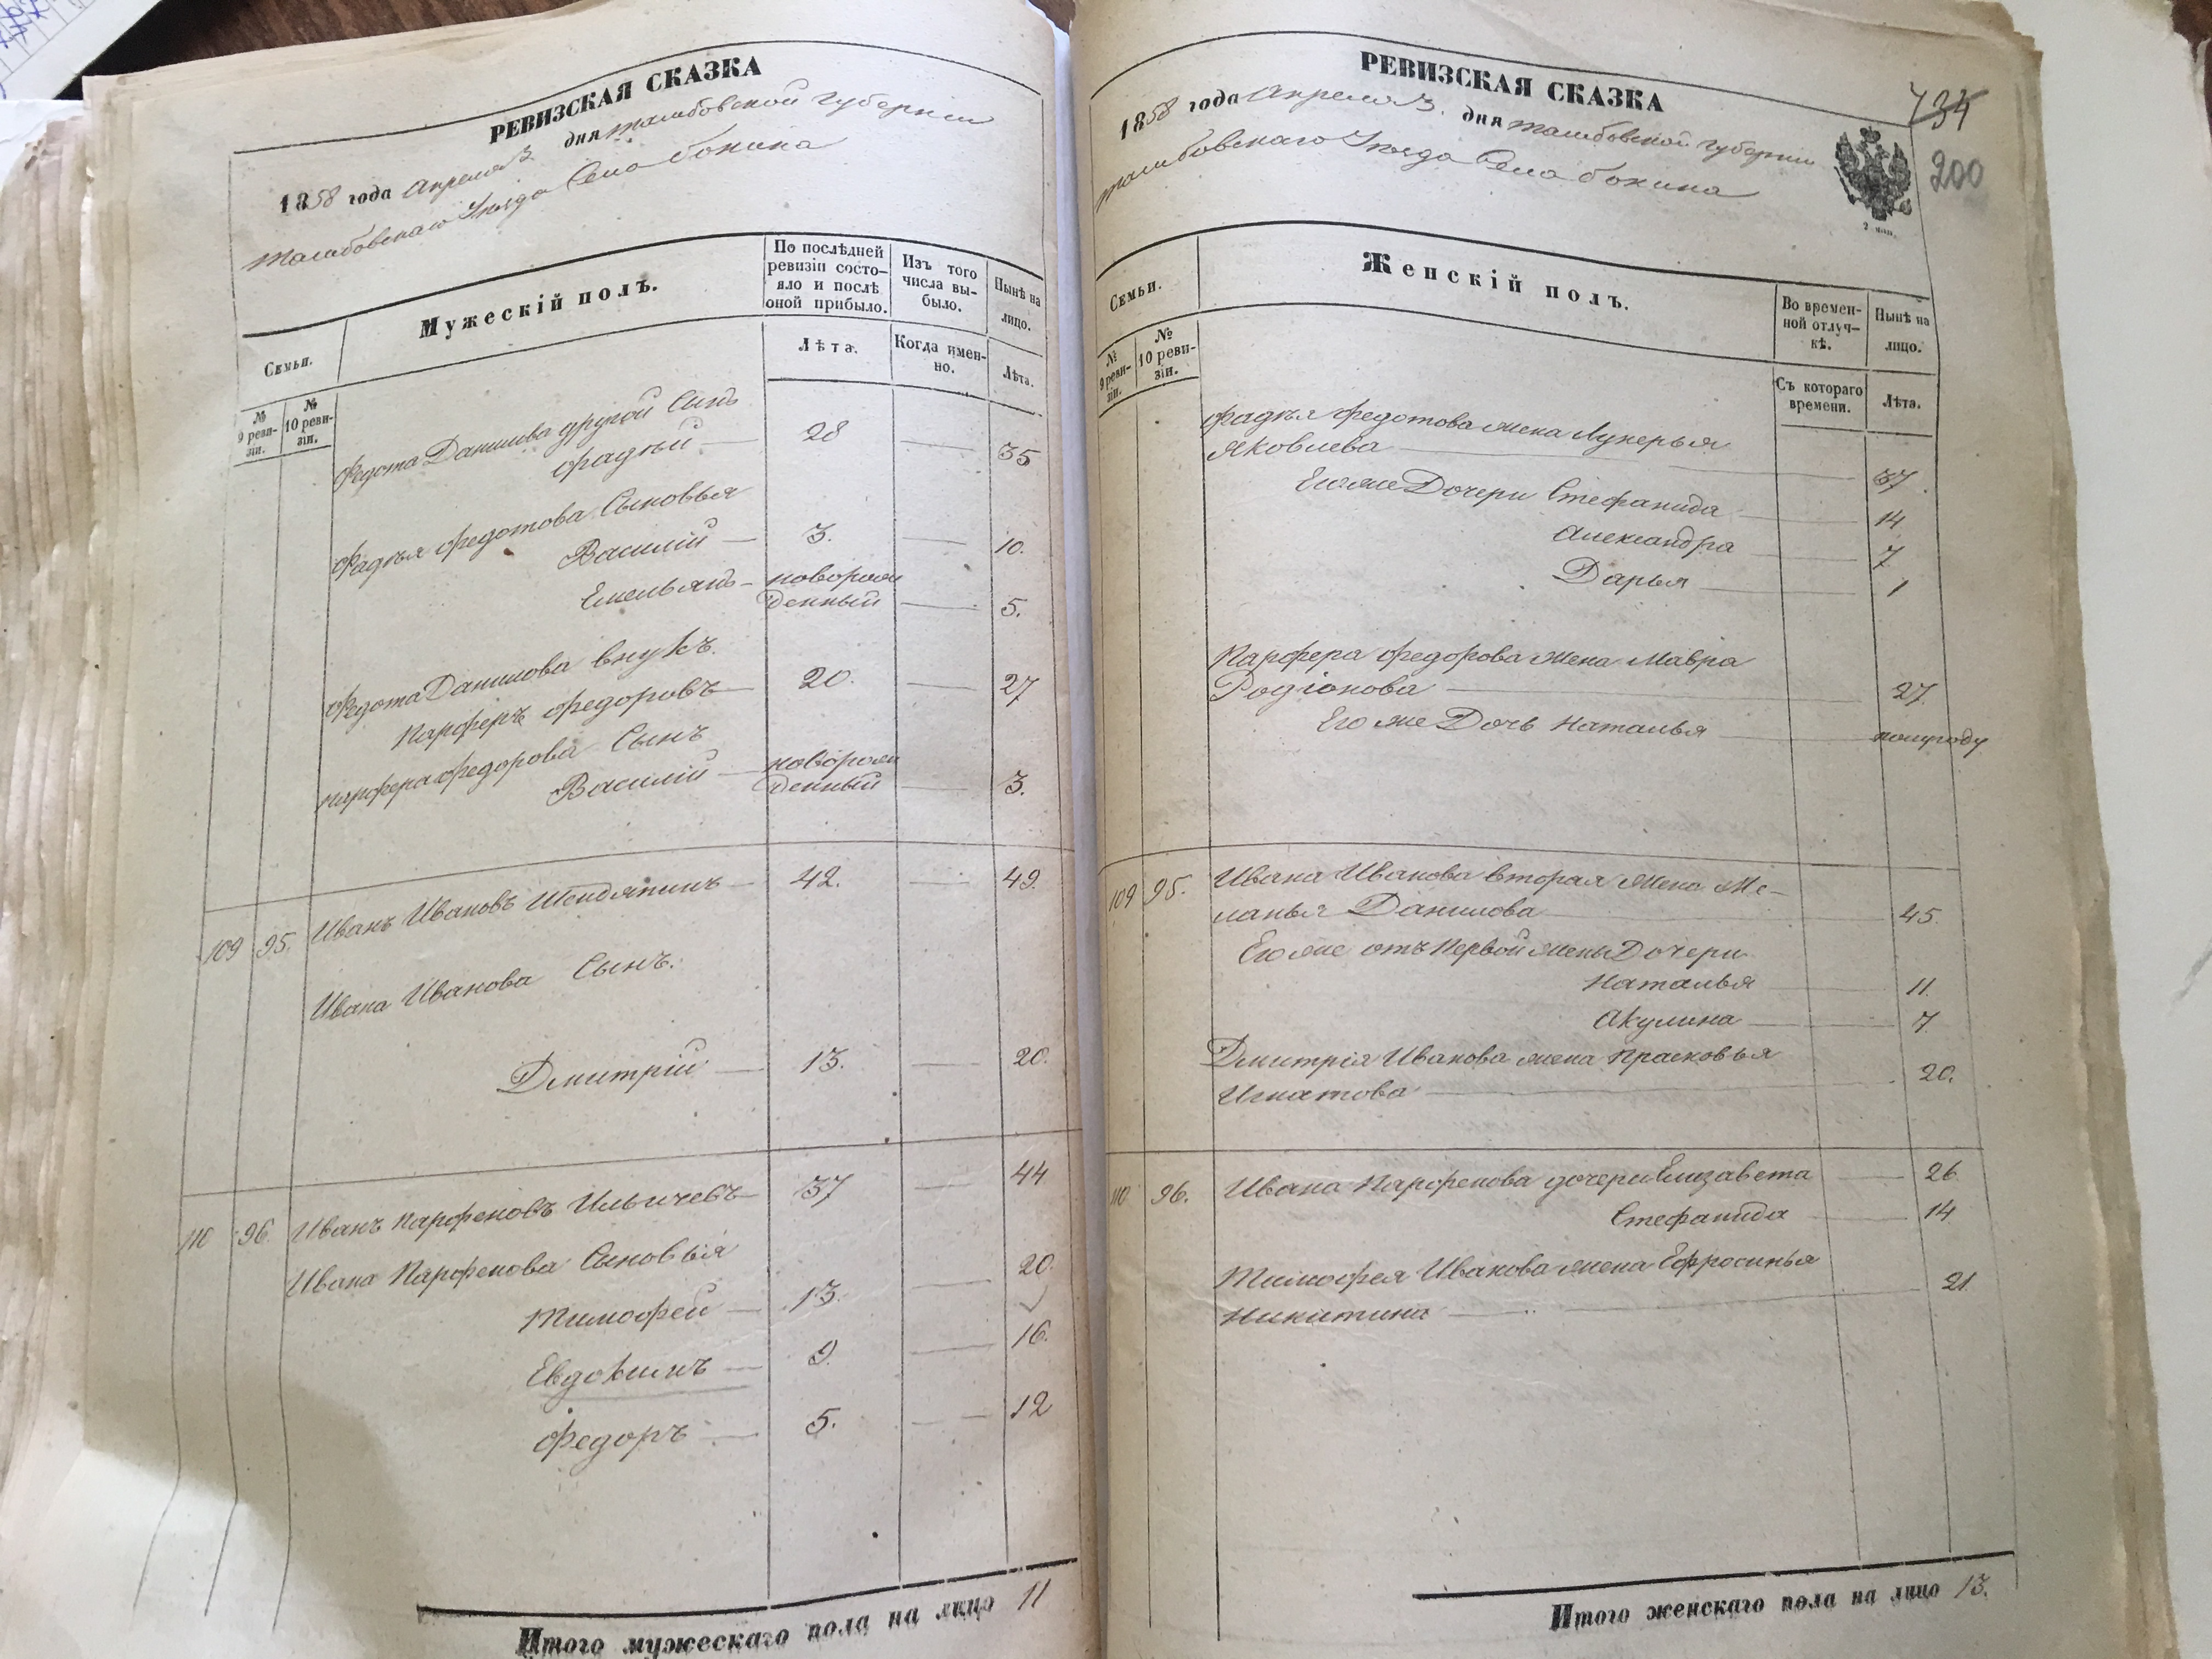 РЕВИЗСКАЯ СКАЗКА
1858 года Апреля 3 дня Тамбовской Губернии
Тамбовскаго Уѣзда Села Бокина
Семьи.
Мужескій полъ.
По послѣдней
ревизіи состо-
яло и послѣ
оной прибыло.
Изъ того
числа вы-
было.
Нынѣ на
лицо.
№
9 реви-
зіи.
№
10 реви-
зіи.
Лѣта.
Когда имен-
но.
Лѣта.
Федота Данилова другой Сынъ
Фадѣй 28 35
Фадѣя Федотова Сыновья
Василій 3. 10.
Емельянъ новорож
денный 5.
Федота Данилова внукъ.
Парферъ Федоровъ 20. 27
Парфера Федорова Сынъ
Василій новорож
денный 3.
109 95. Иванъ Ивановъ Шендяпинъ 42. 49.
Ивана Иванова Сынъ.
Дмитрій 13. 20.
110 96. Иванъ Парфеновъ Ильичевъ 37 44
Ивана Парфенова Сыновья
Тимофей 13. 20.
Евдокимъ 9. 16.
Федоръ 5. 12
Итого мужескаго пола на лицо 11
РЕВИЗСКАЯ СКАЗКА
734
200
1858 года Апреля 3. дня Тамбовской Губернии
Тамбовскаго Уѣзда Села Бокина
Семьи.
Женскій полъ.
Во времен-
ной отлуч-
кѣ.
Нынѣ на
лицо.
№
9 реви-
зіи.
№
10 реви-
зіи.
Съ котораго
времени.
Лѣта.
Фадѣя Федотова жена Лукерья
Яковлева 37
Его же Дочери Стефанида 14
Александра 7
Дарья 1
Парфера Федорова Жена Мавра
Родіонова 27.
Его же Дочь Наталья полугоду
109 95. Ивана Иванова вторая Жена Ме-
ланья Данилова 45.
Его же отъ Первой жены Дочери
Наталья 11.
Акулина 7
Дмитрія Иванова жена Прасковья
Игнатова 20.
110 96. Ивана Парфенова дочери Елизавета 26
Стефанида 14
Тимофея Иванова жена Ефросинья
Никитина 21.
Итого женскаго пола на лицо 13.